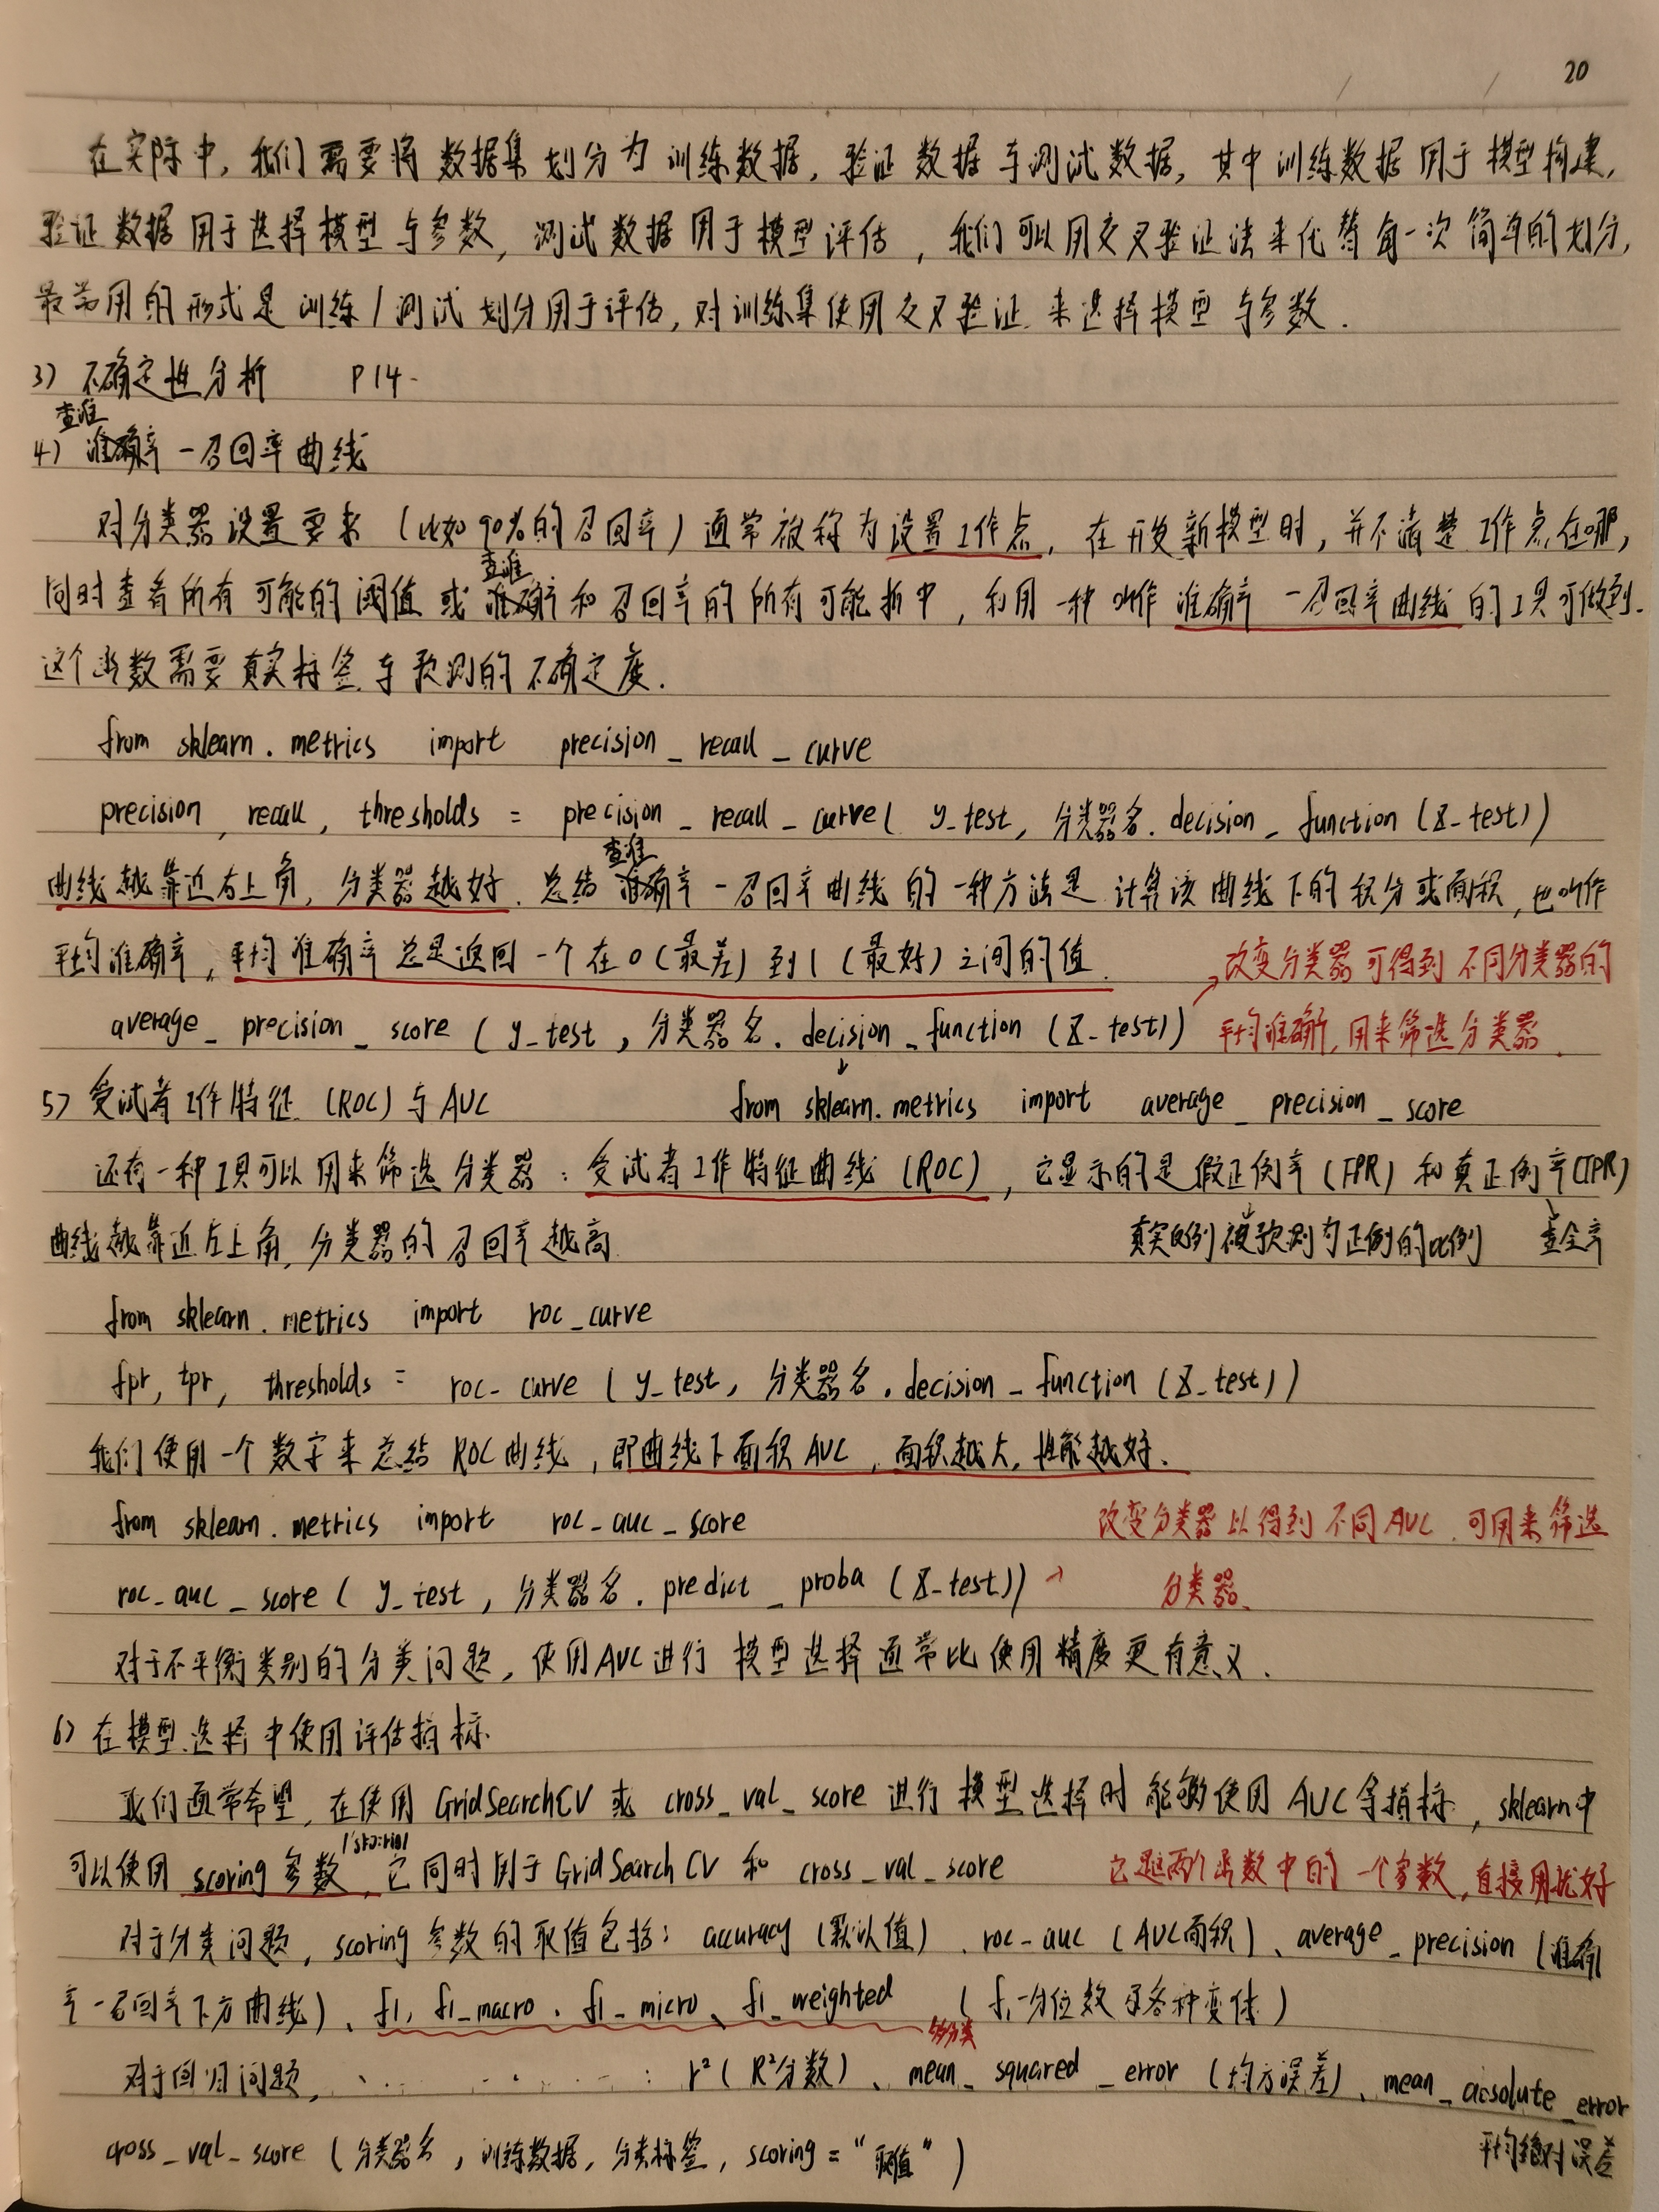 20
在实际中,我们需要将数据集划分为训练数据,验证数据与测试数据,其中训练数据用于模型构建,
验证数据用于选择模型与参数,测试数据用于模型评估,我们可以用交叉验证法来代替每一次简单的划分,
最常用的形式是训练/测试划分用于评估,对训练集使用交叉验证来选择模型与参数.
3) 不确定性分析 P14.
查准
4) 准确率-召回率曲线
对分类器设置要求(比如90%的召回率)通常被称为设置工作点,在开发新模型时,并不清楚工作点在哪,
查准
同时查看所有可能的阈值或准确率和召回率的所有可能折中,利用一种叫作准确率-召回率曲线的工具可做到.
这个函数需要真实标签与预测的不确定度.
from sklearn.metrics import precision_recall_curve
precision, recall, thresholds = precision_recall_curve( y_test, 分类器名.decision_function(X_test))
查准
曲线越靠近右上角,分类器越好.总结准确率-召回率曲线的一种方法是计算该曲线下的积分或面积,也叫作
平均准确率,平均准确率总是返回一个在0(最差)到1(最好)之间的值. 改变分类器可得到不同分类器的
average_precision_score( y_test, 分类器名.decision_function(X_test)) 平均准确率,用来筛选分类器.
5) 受试者工作特征(ROC)与AUC from sklearn.metrics import average_precision_score
还有一种工具可以用来筛选分类器:受试者工作特征曲线(ROC),它显示的是假正例率(FPR)和真正例率(TPR)
曲线越靠近左上角,分类器的召回率越高. 真实的例被预测为正例的比例 查全率
from sklearn.metrics import roc_curve
fpr, tpr, thresholds = roc_curve( y_test, 分类器名.decision_function(X_test))
我们使用一个数字来总结ROC曲线,即曲线下面积AUC,面积越大,性能越好.
from sklearn.metrics import roc_auc_score 改变分类器以得到不同AUC,可用来筛选
roc_auc_score( y_test, 分类器名.predict_proba(X_test)) 分类器.
对于不平衡类别的分类问题,使用AUC进行模型选择通常比使用精度更有意义.
6) 在模型选择中使用评估指标.
我们通常希望,在使用GridSearchCV或cross_val_score进行模型选择时能够使用AUC等指标,sklearn中
可以使用scoring参数,它同时用于GridSearchCV和cross_val_score 它是这两个函数中的一个参数,直接用就好
对于分类问题,scoring参数的取值包括:accuracy(默认值)、roc_auc(AUC面积)、average_precision(准确
率-召回率下方曲线)、f1, f1_macro、f1_micro、f1_weighted (f1-分位数及各种变体)
多分类
对于回归问题, ........ : r²(R²分数)、mean_squared_error(均方误差)、mean_absolute_error
cross_val_score(分类器名,训练数据,分类标签,scoring="取值") 平均绝对误差